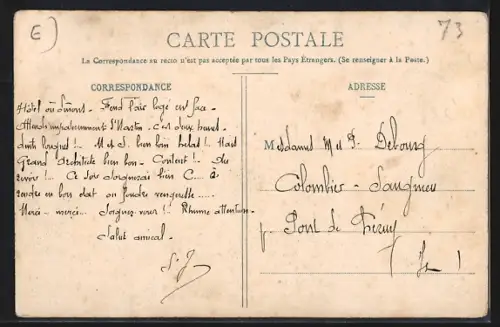 E)
73
CARTE POSTALE
La Correspondance au recto n'est pas acceptée par tous les Pays Étrangers. (Se renseigner à la Poste.)
CORRESPONDANCE
Hôtel où dînons - Fond l'air logé en face -
Attends impatiemment S'Martin. C'est deux
longues !.. M et J. bien loin hélas !.. Haid
Grand bien bon - Content !.. Au
revoir !.. Ce soir bien C... à
rendre en bon état ou foudre vengeresse.....
Merci - merci... Soignez-vous !.. Rhume attention -
Salut amical -
S. J.
ADRESSE
Mesdames M et J. Debourg
Colombier - Saugnieu
p. Pont de Chéruy
(Is.)